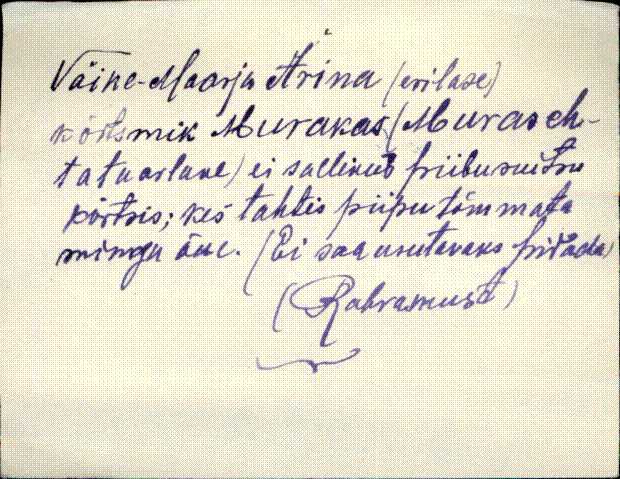 Väike-Maarja Ärina (erilase)
kõrtsmik Murakas (Murasch-
tatarlane) ei sallinud piibusuitsu
kõrtsis; kes tahtis piipu tõmmata
mingu õue. (Ei saa usutavaks pidada)
(Rahvasuust)